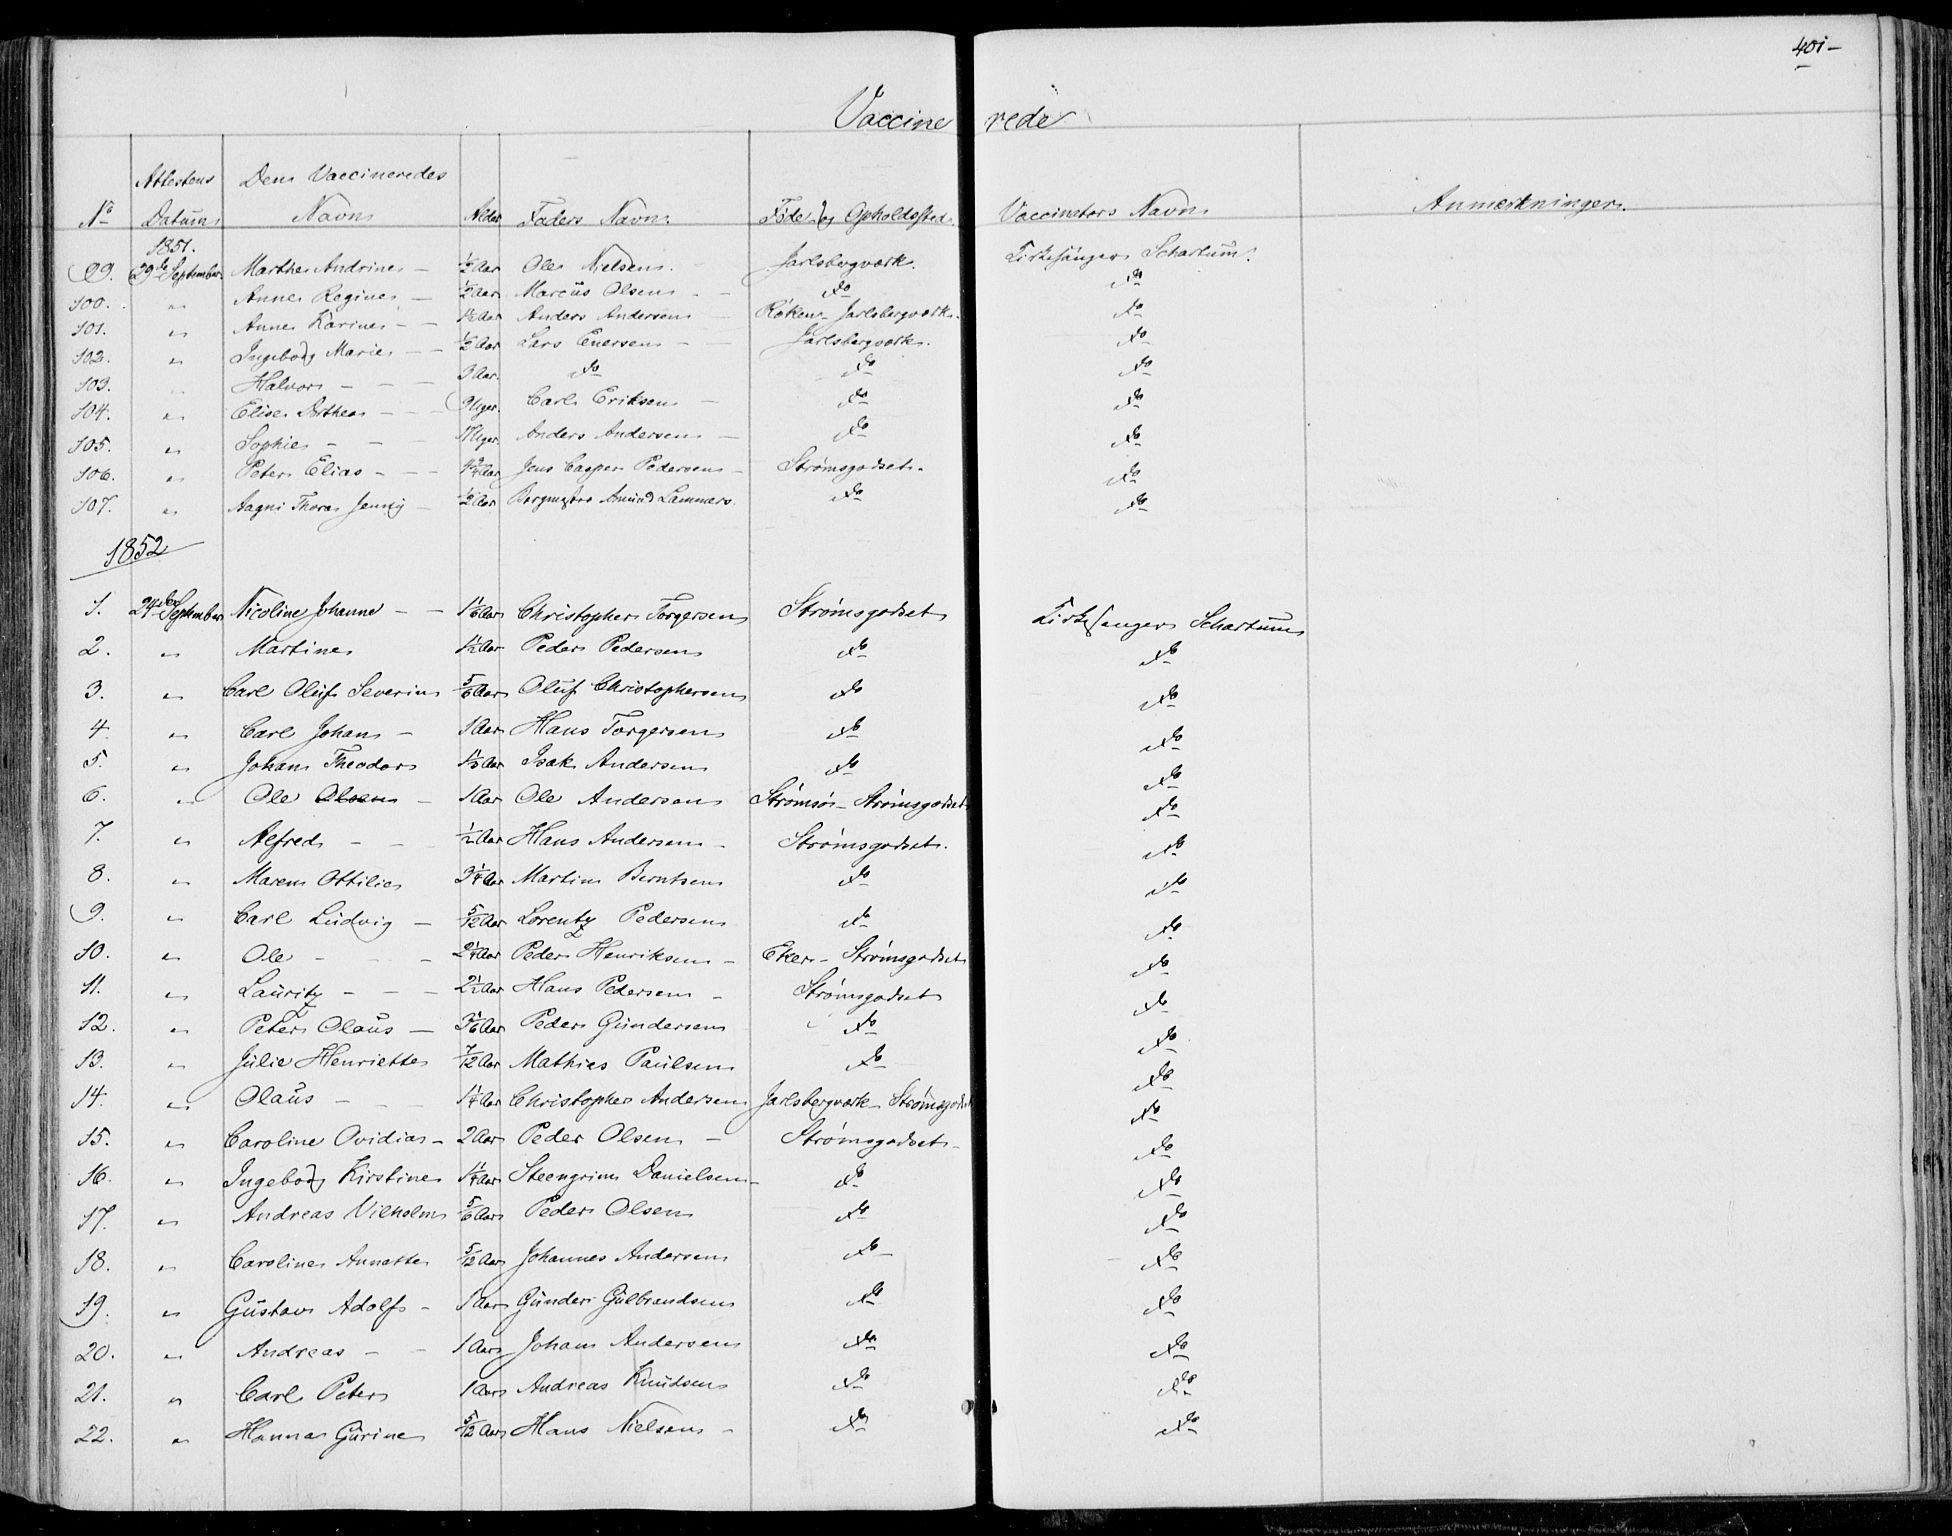 401-
Vaccinerede
No | Attestens Datum | Den Vaccineredes Navn | Alder | Faders Navn | Føde og Opholdssted | Vaccinators Navn | Anmærkninger
1851.
99. 29de September Marthe Andrine - 1/2 Aar Ole Nielsen. Jarlsbergværk. Kirkesanger Schartum.
100. " Anne Regine - 1/2 Aar Marcus Olsen - - do do
101. " Anne Karine - - 1 1/2 Aar Anders Andersen Røken - Jarlsbergværk. do
102. " Ingeborg Marie - - 1/2 Aar Lars Enersen - - Jarlsbergværk. do
103. Halvor - - - 3 Aar. do do do
104. " Elise Dorthea - - - 9 Uger. Carl Eriksen - do do
105. " Sophie - - - Uger. Anders Andersen - do do
106. " Peter Elias - - - Aar Jens Casper Pedersen - Strømsgodset. do
107. " Aagni Thora Jenny - 1/2 Aar Bergmester Amund Lammers. do do
1852
1. 24de September Nicoline Johanne - - 1 1/6 Aar Christopher Torgersen Strømsgodset Kirkesanger Schartum
2. " Martine 1 1/2 Aar Peder Pedersen do do
3. " Carl Oluf Severin 5/6 Aar Oluf Christophersen do do
4. " Carl Johan - 1 Aar Hans Torgersen do do
5. " Johan Theodor 1 1/3 Aar Isak Andersen do do
6. " Ole Olsen - 1 Aar Ole Andersen Strømsø - Strømsgodset do
7. " Alfred - - 1/2 Aar Hans Andersen - Strømsgodset. do
8. " Maren Ottilie 3 1/4 Aar Martin Berntsen do do
9. " Carl Ludvig - 5/12 Aar Lorentz Pedersen do do
10. " Ole - - - 2 1/4 Aar Peder Henriksen - Eker - Strømsgodset do
11. " Lauritz - - - 2 1/2 Aar Hans Pedersen - Strømsgodset do
12. " Peter Olaus - 3 1/6 Aar Peder Gundersen do do
13. " Julie Henriette 7/12 Aar Mathias Paulsen do do
14. " Olaus - - - 1 1/4 Aar Christopher Andersen Jarlsbergværk - Strømsgodset do
15. " Caroline Ovidia - 2 Aar Peder Olsen - Strømsgodset - do
16. " Ingeborg Kirstine 1 1/4 Aar Steengrim Danielsen - do do
17. " Andreas Vilhelm 5/6 Aar Peder Olsen do do
18. " Caroline Annette 5/12 Aar Johannes Andersen do do
19. " Gustav Adolf - 1 Aar Gunder Gulbrandsen do do
20. " Andreas - - 1 Aar Johan Andersen do do
21. " Carl Peter 1 Aar Andreas Knudsen do do
22. " Hanna Gurine 5/12 Aar Hans Nielsen - do do